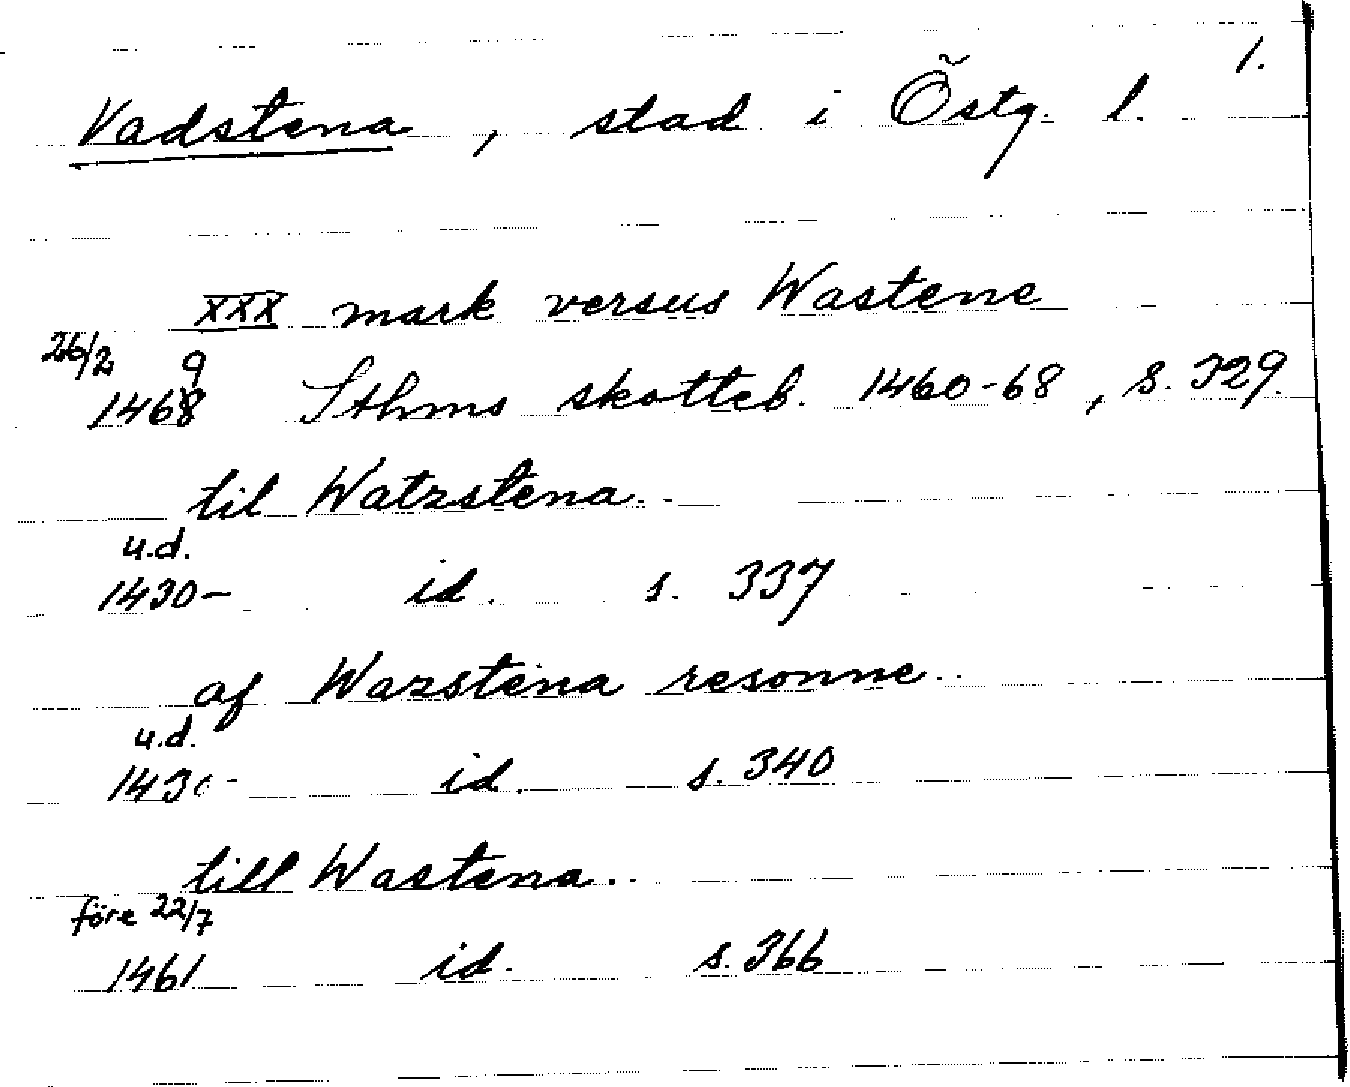 1.
Vadstena, stad i Östg. l.
XXX mark versus Wastene
26/2 9
1468 Sthms skotteb. 1460-68, s. 329.
til Watzstena..
u.d.
1430- id. s. 337
af Wazstena resonne..
u.d.
1430- id. s. 340
till Wastena..
före 22/7
1461 id. s. 366